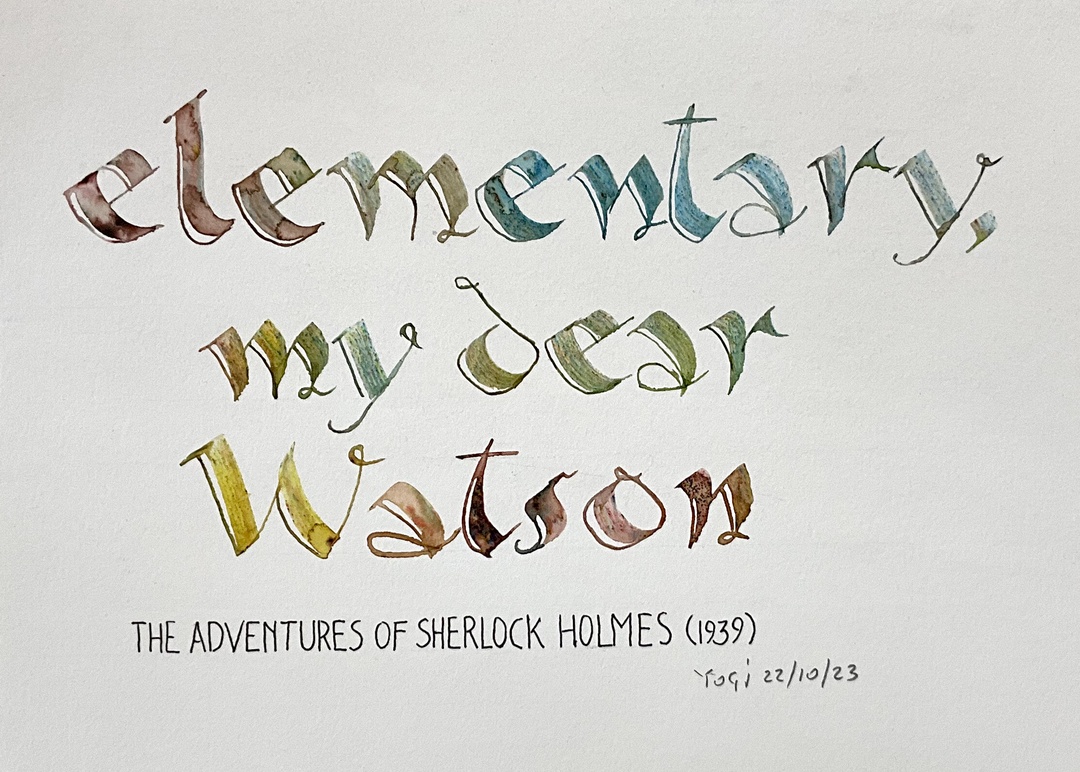 elementary,
my dear
Watson
THE ADVENTURES OF SHERLOCK HOLMES (1939)
Yogi 22/10/23